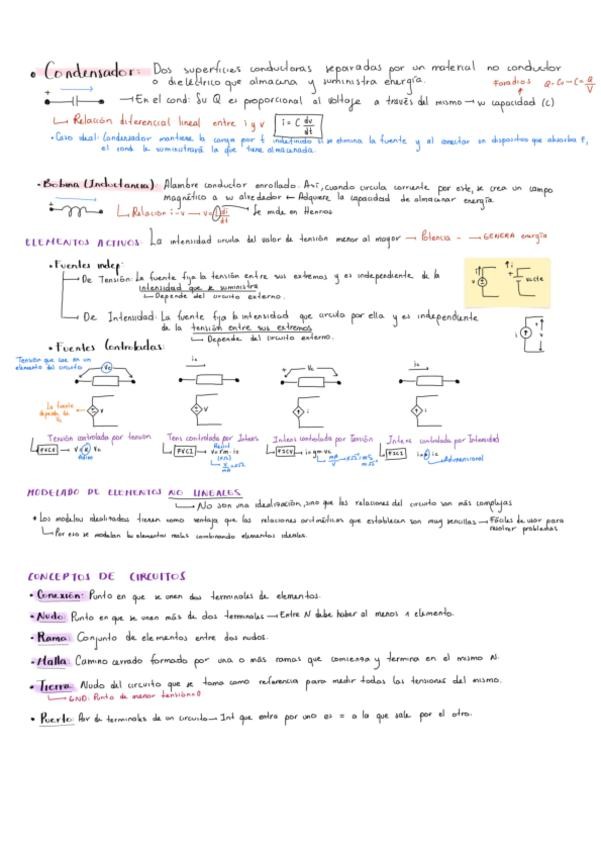 • Condensador: Dos superficies conductoras separadas por un material no conductor
o dieléctrico que almacena y suministra energía.
Faradios Q=Cv→C=Q/V
+ →En el cond: Su Q es proporcional al voltaje a través del mismo→su capacidad (C)
↳ Relación diferencial lineal entre i y v i = C dv/dt
• Caso ideal: Condensador mantiene la carga por t indefinido si se elimina la fuente y al conectar en dispositivo que absorba E,
el cond le suministrará la que tiene almacenada.
• Bobina (Inductancia): Alambre conductor enrollado. Así, cuando circula corriente por este, se crea un campo
magnético a su alrededor ← Adquiere la capacidad de almacenar energía
+ ↳ Relación i-v → v=L di/dt Se mide en Henrios
ELEMENTOS ACTIVOS: La intensidad circula del valor de tensión menor al mayor → Potencia - → GENERA energía
• Fuentes indep:
De Tensión: La fuente fija la tensión entre sus extremos y es independiente de la
intensidad que se suministra
↳ Depende del circuito externo.
De Intensidad: La fuente fija la intensidad que circula por ella y es independiente
de la tensión entre sus extremos
↳ Depende del circuito externo.
• Fuentes Controladas:
Tensión que cae en un
elemento del circuito
+ Vc ic + Vc ic
La fuente
depende de
Vc
v v i i
Tensión controlada por tensión Tens controlada por Intens Intens controlada por Tensión Intens controlada por Intensidad
adimensional
MODELADO DE ELEMENTOS NO LINEALES
↳ No son una idealización, sino que las relaciones del circuito son más complejas
• Los modelos idealizados tienen como ventaja que las relaciones aritméticas que establecen son muy sencillas → Fáciles de usar para
resolver problemas
↳ Por eso se modelan los elementos reales combinando elementos ideales.
CONCEPTOS DE CIRCUITOS
• Conexión: Punto en que se unen dos terminales de elementos.
• Nudo: Punto en que se unen más de dos terminales → Entre N debe haber al menos 1 elemento.
• Rama: Conjunto de elementos entre dos nudos.
• Malla: Camino cerrado formado por una o más ramas que comienza y termina en el mismo N.
• Tierra: Nudo del circuito que se toma como referencia para medir todas las tensiones del mismo.
↳ GND: Punto de menor tensión=0
• Puerto: Par de terminales de un circuito → Int que entra por uno es = a la que sale por el otro.